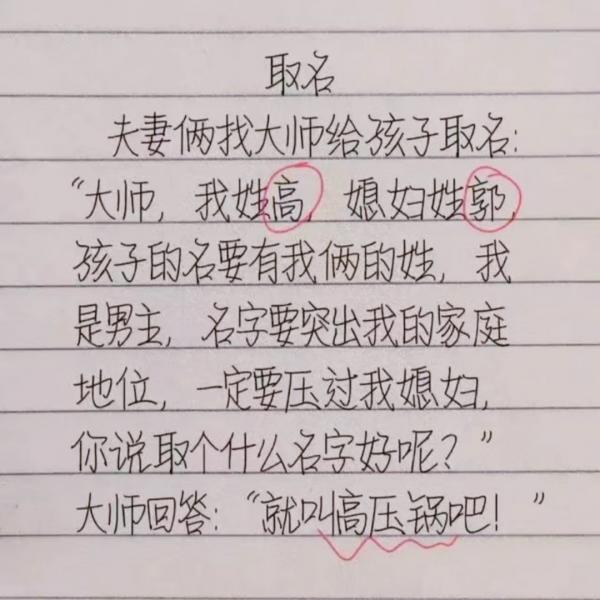 取名
夫妻俩找大师给孩子取名：
“大师，我姓高，媳妇姓郭，
孩子的名要有我俩的姓，我
是男主，名字要突出我的家庭
地位，一定要压过我媳妇，
你说取个什么名字好呢？”
大师回答：“就叫高压锅吧！”